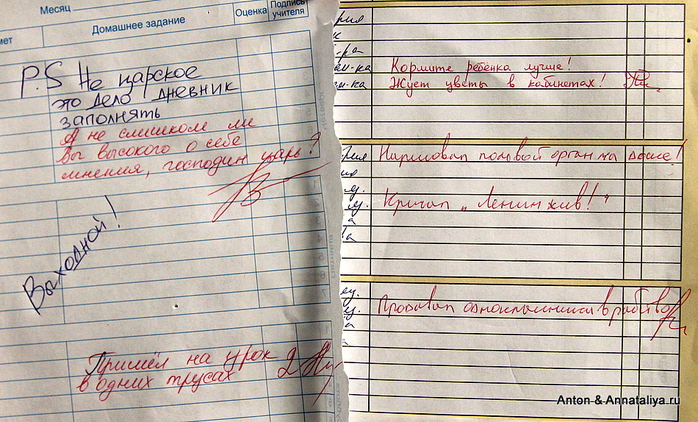 Месяц
Домашнее задание
Оценка
Подпись
учителя
мет
P.S Не царское
это дело дневник
заполнять
А не слишком ли
Вы высокого о себе
мнения, господин царь?
Выходной!
Пришёл на урок
в одних трусах 2
рия
к
ра
ка Кормите ребёнка лучше!
ка Жует цветы в кабинетах!
рия Нарисовал половой орган на доске!
Кричал "Ленин жив!"
Продавал одноклассников в рабство
Anton & Annataliya.ru